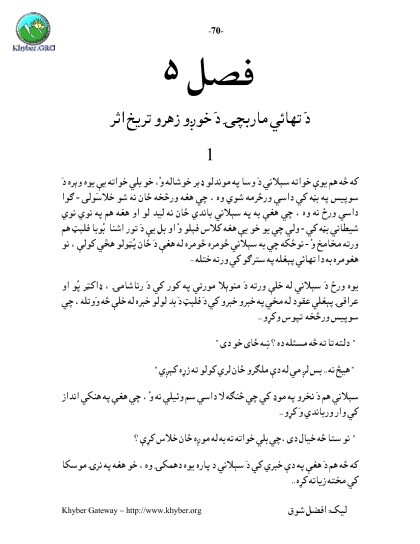 -70-
Khyber.ORG
فصل ۵
دَ تهائي ماربچۍ دَ خوږو زهرو تريخ اثر
1
که څه هم يوې خواته سبلاني دَ وسا په موندلو ډېر خوشاله وٗ، خو بلې خواته يې يوه وېره دَ
سوپيس په بڼه کې داسې ورڅرمه شوې وه ، چې هغې ورڅخه ځان نه شو خلاسَولی - ګوا
داسې ورځ نه وه ، چې هغې به په سبلاني باندې ځان نه ليد لو او هغه هم په نوي نوي
شيطاني بڼه کې - ولې چې يو خو يې هغه کلاس فېلو وٗ او بل يې دَ تور اشنا بُوبا فلېټ هم
ورته مخامخ وٗ - نوځکه چې به سبلاني څومره څومره له هغې دَ ځان پُټولو هڅې کولې ، نو
هغومره به دا تهائي پېغله په سترګو کې ورته ختله -
يوه ورځ دَ سبلاني له خلې ورته دَ منوېلا مورنې په کور کې دَ رنا شامۍ ، ډاکټر پُو او
عراقۍ پېغلې عقود له مخې په خبرو خبرو کې دَ فلېټ دَ بد لولو خبره له خلې څه وَوتله ، چې
سوپيس ورڅخه تپوس وکړو..
" دلته تا ته څه مسئله ده ؟ ښه ځای خو دی "
" هيڅ نه.. بس لږ مې له دې ملګرو ځان لرې کولو ته زړه کېږي "
سبلاني هم دَ نخرو په موډ کې چې څنګه لا داسې سم وئيلي نه وٗ ، چې هغې په هنکې انداز
کې وار ورباندې وَکړو..
" نو ستا څه خيال دی ، چې بلې خواته ته به له موږه ځان خلاس کړې ؟
که څه هم دَ هغې په دې خبرې کې دَ سبلاني دَ پاره يوه دهمکۍ وه ، خو هغه په نرۍ موسکا
کې مخته زياته کړه..
Khyber Gateway – http://www.khyber.org
ليک: افضل شوق